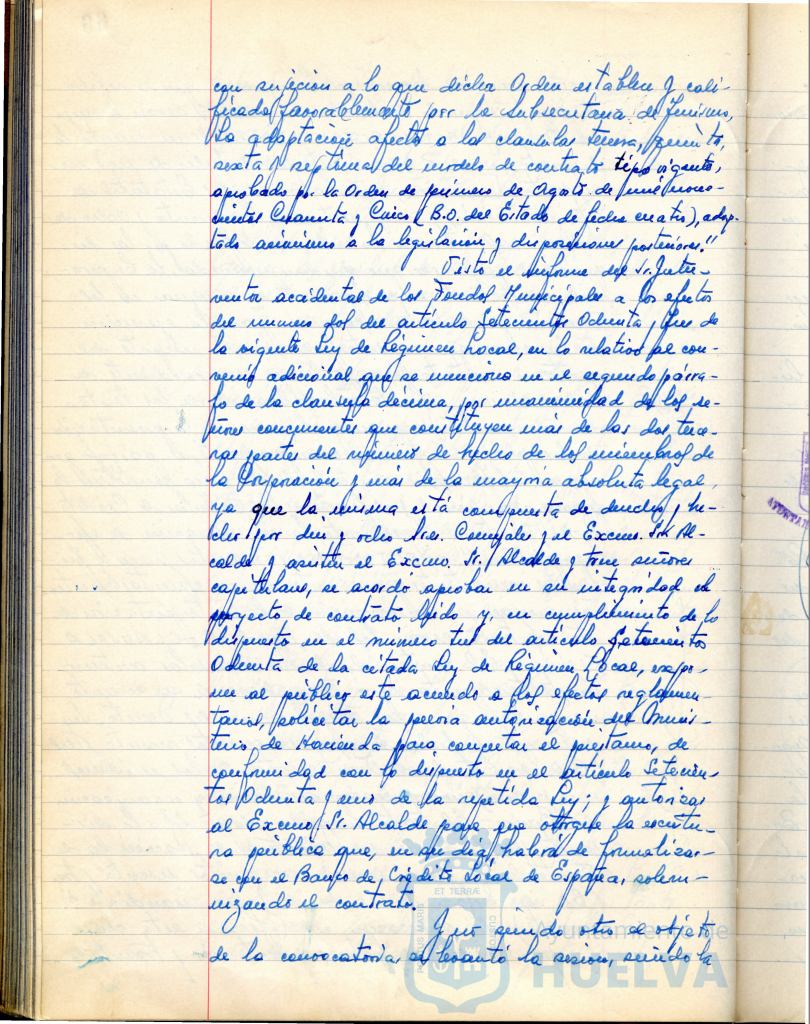 con sujecion a lo que dicha Orden establece y cali-
ficada favorablemente por la Subsecretaria de Turismo,
La adaptación afecta a las clausulas tercera, quinta,
sexta y septima del modelo de contrato tipo vigente,
aprobado por la Orden de primero de Agosto de mil nove-
cientos Cuarenta y Cinco (B.O. del Estado de fecha cuatro), adap-
tado asimismo a la legislación y disposiciones posteriores."
Visto el informe del Sr. Inter-
ventor accidental de los Fondos Municipales a los efectos
del numero dos del artículo Setecientos Ochenta y tres de
la vigente Ley de Régimen Local, en lo relativo al con-
venio adicional que se menciona en el segundo párra-
fo de la clausula décima, por unanimidad de los se-
ñores concurrentes que constituyen más de las dos terce-
ras partes del número de hecho de los miembros de
la Corporación y más de la mayoria absoluta legal,
ya que la misma está compuesta de derecho y he-
cho por diez y ocho Sres. Concejales y el Excmo. Sr. Al-
calde y asisten el Excmo. Sr. Alcalde y trece señores
capitulares, se acordó aprobar en su integridad el
proyecto de contrato leido y, en cumplimiento de lo
dispuesto en el número tres del artículo Setecientos
Ochenta de la citada Ley de Régimen Local, expo-
ner al público este acuerdo a los efectos reglamen-
tarios, solicitar la previa autorización del Minis-
terio de Hacienda para concertar el préstamo, de
conformidad con lo dispuesto en el artículo Setecien-
tos Ochenta y uno de la repetida Ley; y autorizar
al Excmo. Sr. Alcalde para que otorgue la escritu-
ra pública que, en su dia, habrá de formalizar-
se con el Banco de Crédito Local de España, solem-
nizando el contrato.
Y no siendo otro el objeto
de la convocatoria, se levantó la sesion, siendo la
ET TERRÆ
PORTUS MARIS
CUSTODIA
Ayuntamiento de
HUELVA